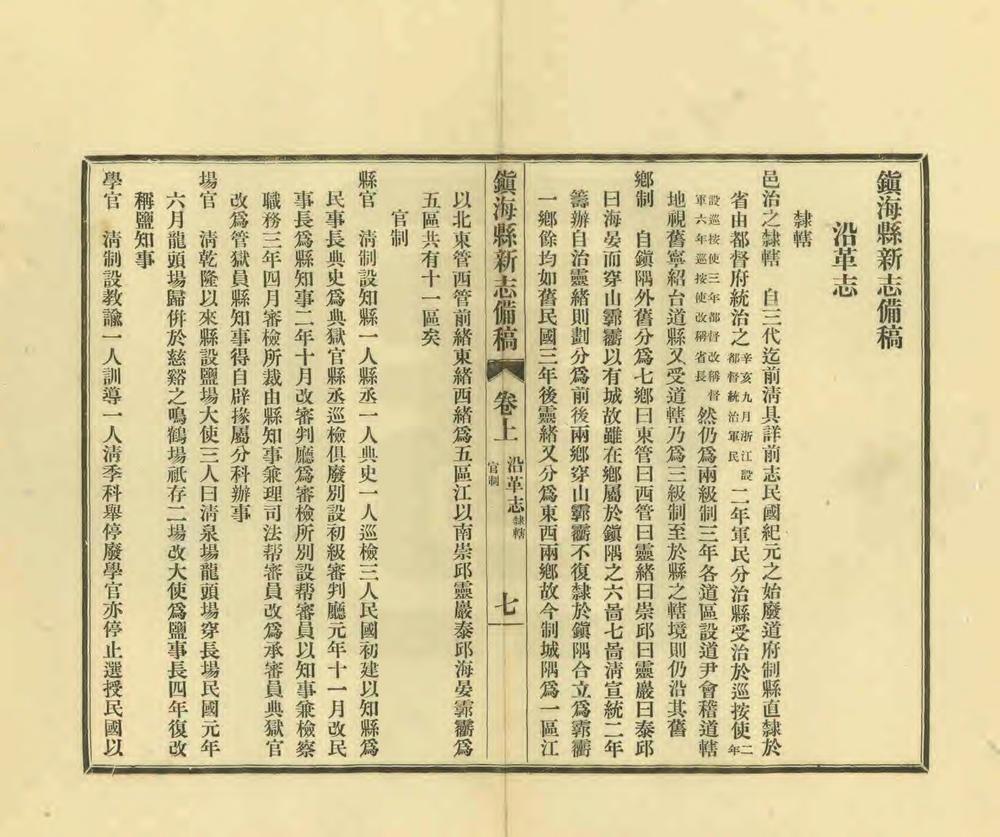 鎭海縣新志備稿
沿革志
隸轄
邑治之隸轄　自三代迄前淸具詳前志民國紀元之始廢道府制縣直隸於
省由都督府統治之辛亥九月浙江設都督統治軍民二年軍民分治縣受治於巡按使二年
設巡按使三年都督改稱督軍六年巡按使改稱省長然仍爲兩級制三年各道區設道尹會稽道轄
地視舊寧紹台道縣又受道轄乃爲三級制至於縣之轄境則仍沿其舊
鄕制　自鎭隅外舊分爲七鄕曰東管曰西管曰靈緖曰崇邱曰靈巖曰泰邱
曰海晏而穿山霩𩇕以有城故雖在鄕屬於鎭隅之六啚七啚淸宣統二年
籌辦自治靈緖則劃分爲前後兩鄕穿山霩𩇕不復隸於鎭隅合立爲霩𩇕
一鄕餘均如舊民國三年後靈緖又分爲東西兩鄕故今制城隅爲一區江
鎭海縣新志備稿　卷上　沿革志　隸轄　官制　七
以北東管西管前緖東緖西緖爲五區江以南崇邱靈巖泰邱海晏霩𩇕爲
五區共有十一區矣
官制
縣官　淸制設知縣一人縣丞一人典史一人巡檢三人民國初建以知縣爲
民事長典史爲典獄官縣丞巡檢俱廢別設初級審判廳元年十一月改民
事長爲縣知事二年十月改審判廳爲審檢所別設帮審員以知事兼檢察
職務三年四月審檢所裁由縣知事兼理司法帮審員改爲承審員典獄官
改爲管獄員縣知事得自辟掾屬分科辦事
場官　淸乾隆以來縣設鹽場大使三人曰淸泉場龍頭場穿長場民國元年
六月龍頭場歸倂於慈谿之鳴鶴場祇存二場改大使爲鹽事長四年復改
稱鹽知事
學官　淸制設教諭一人訓導一人淸季科舉停廢學官亦停止選授民國以